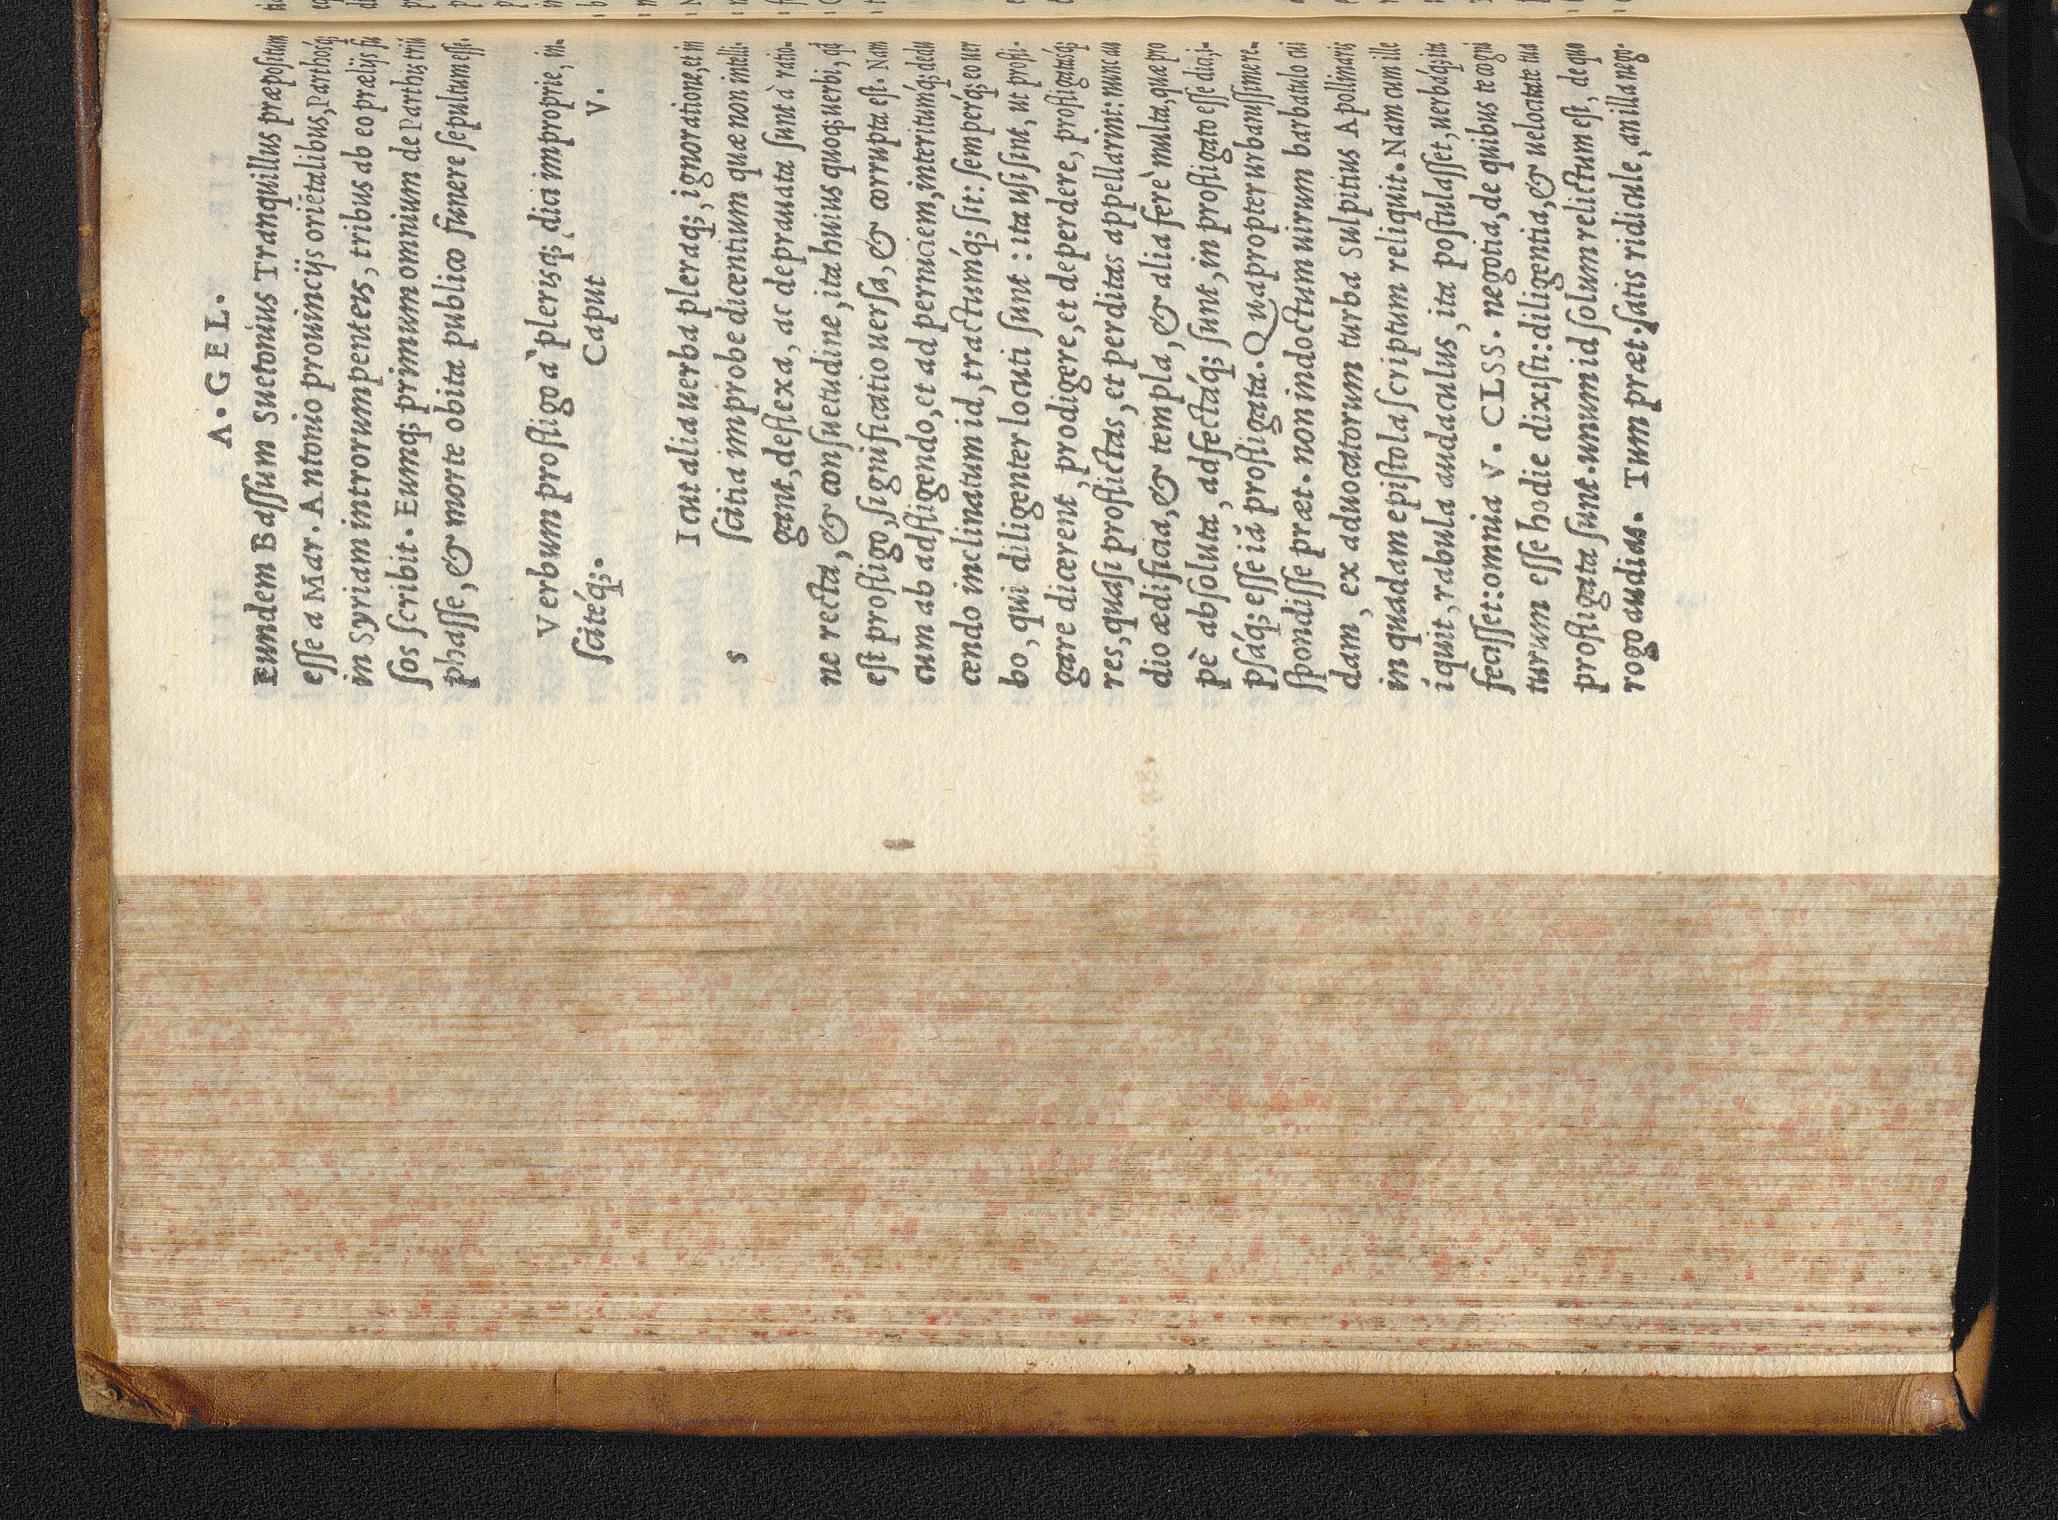 A. GEL.
Eundem Bassum Suetonius Tranquillus præpositum
esse a Mar. Antonio prouincijs oriētalibus, Parthosq;
in Syriam introrumpenteis, tribus ab eo prælijs fu
sos scribit. Eumq; primum omnium de Parthis triū
phasse, & morte obita publico funere sepultum esse.
Verbum profligo à plerisq; dici improprie, in-
scitéq;. Caput V.
Icut alia uerba pleraq;, ignoratione, et in
s scitia improbe dicentium quæ non intelli-
gant, deflexa, ac deprauata sunt à ratio-
ne recta, & consuetudine, ita huius quoq; uerbi, qđ
est profligo, significatio uersa, & corrupta est. Nam
cum ab adfligendo, et ad perniciem, interitumq́; dedu
cendo inclinatum id, tractumq́; sit: semperq́; eo uer
bo, qui diligenter locuti sunt: ita usi sint, ut profli-
gare dicerent, prodigere, et deperdere, profligatasq́;
res, quasi proflictas, et perditas appellarint: nunc au
dio ædificia, & templa, & alia ferè multa, quæ pro
pè absoluta, adfectáq; sunt, in profligato esse dici, i-
psáq; esse iā profligata. Quapropter urbanissime re-
spondisse præt. non indoctum uirum barbatulo cui
dam, ex aduocatorum turba Sulpitius Apollinaris
in quadam epistola scriptum reliquit. Nam cum ille
īquit, rabula audaculus, ita postulasset, uerbáq; ita
fecisset: omnia V. CLSS. negotia, de quibus te cogni
turum esse hodie dixisti: diligentia, & uelocitate tua
profligata sunt. unum id solum relictum est, de quo
rogo audias. Tum præt. satis ridicule, an illa nego-